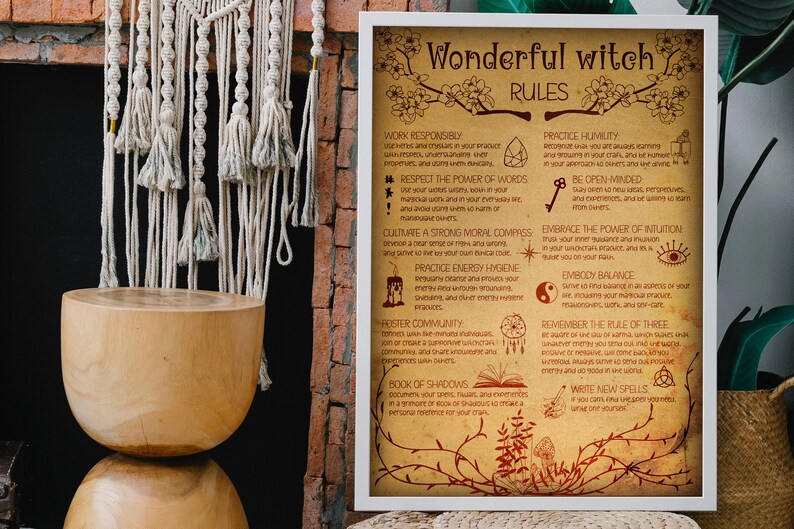 Wonderful witch
RULES
WORK RESPONSIBLY:
Use herbs and crystals in your practice
with respect, understanding their
properties, and using them ethically.
RESPECT THE POWER OF WORDS:
Use your words wisely, both in your
magickal work and in your everyday life,
and avoid using them to harm or
manipulate others.
CULTIVATE A STRONG MORAL COMPASS:
Develop a clear sense of right and wrong,
and strive to live by your own ethical code.
PRACTICE ENERGY HYGIENE:
Regularly cleanse and protect your
energy field through grounding,
shielding, and other energy hygiene
practices.
FOSTER COMMUNITY:
Connect with like-minded individuals,
join or create a supportive witchcraft
community, and share knowledge and
experiences with others.
BOOK OF SHADOWS
Document your spells, rituals, and experiences
in a grimoire or Book of Shadows to create a
personal reference for your craft.
PRACTICE HUMILITY:
Recognize that you are always learning
and growing in your craft, and be humble
in your approach to others and the divine.
BE OPEN-MINDED:
Stay open to new ideas, perspectives,
and experiences, and be willing to learn
from others.
EMBRACE THE POWER OF INTUITION:
Trust your inner guidance and intuition
in your witchcraft practice, and let it
guide you on your path.
EMBODY BALANCE:
Strive to find balance in all aspects of your
life, including your magickal practice,
relationships, work, and self-care.
REMEMBER THE RULE OF THREE:
Be aware of the law of karma, which states that
whatever energy you send out into the world,
positive or negative, will come back to you
threefold. Always strive to send out positive
energy and do good in the world.
WRITE NEW SPELLS:
If you can't find the spell you need,
write one yourself.